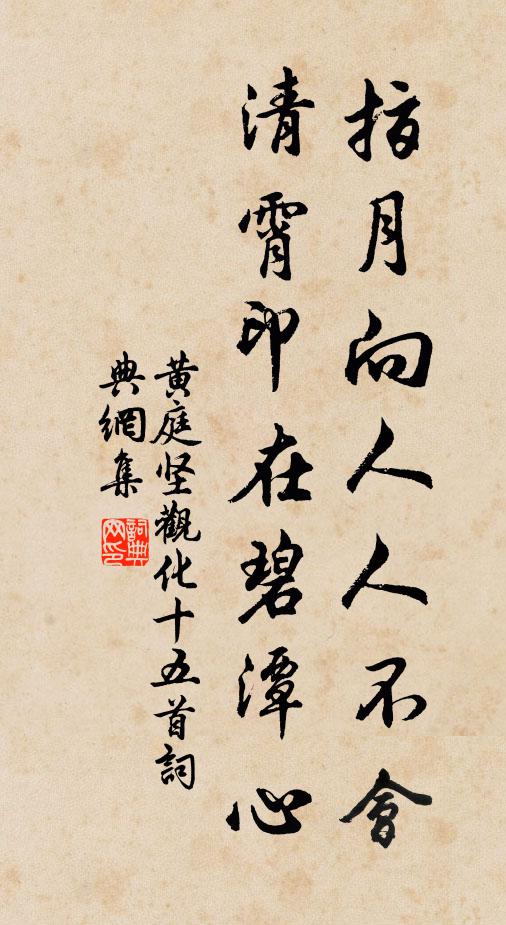 指月向人人不會
清霄印在碧潭心
黄庭坚觀化十五首詞
典網集
詞典網印